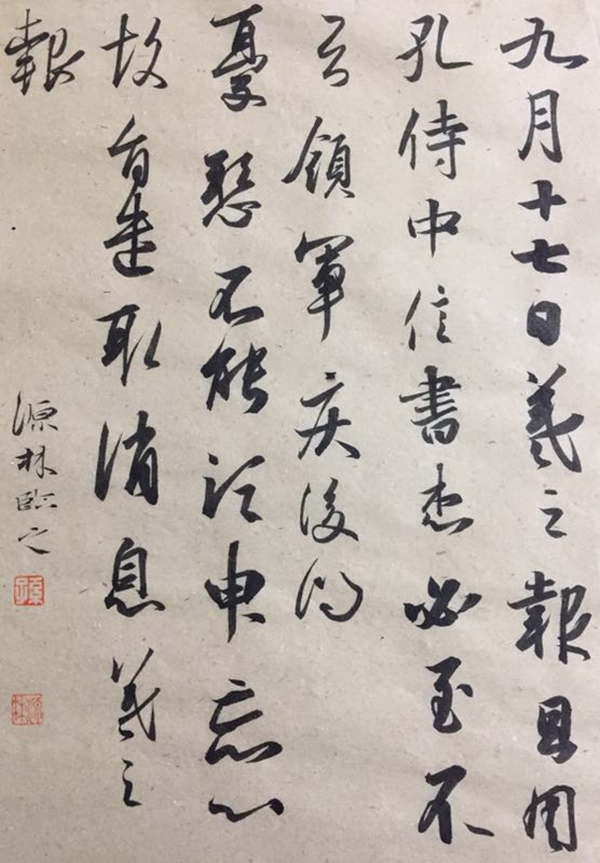 九月十七日羲之報且因
孔侍中信書想必至不
知領軍疾後問
憂懸不能須臾忘心
故旨遣取消息羲之
報
源林臨之